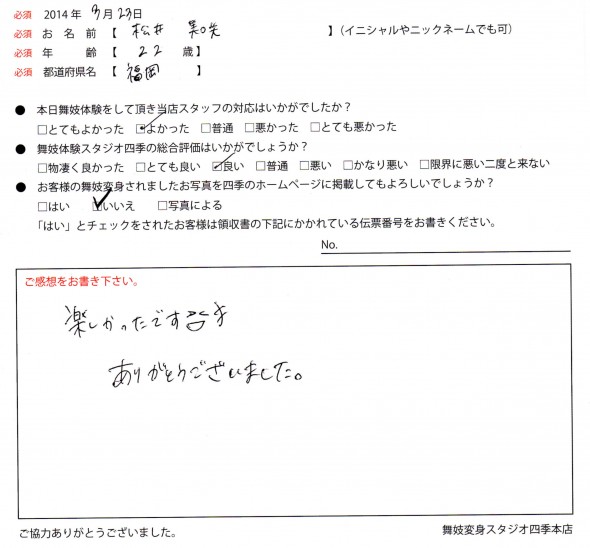 必須 2014年 3月23日
必須 お名前【 松井 美咲 】(イニシャルやニックネームでも可)
必須 年齢【 22 歳】
必須 都道府県名【 福岡 】
● 本日舞妓体験をして頂き当店スタッフの対応はいかがでしたか？
□とてもよかった ☑よかった □普通 □悪かった □とても悪かった
● 舞妓体験スタジオ四季の総合評価はいかがでしょうか？
□物凄く良かった □とても良い ☑良い □普通 □悪い □かなり悪い □限界に悪い二度と来ない
● お客様の舞妓変身されましたお写真を四季のホームページに掲載してもよろしいでしょうか？
□はい ☑いいえ □写真による
「はい」とチェックをされたお客様は領収書の下記にかかれている伝票番号をお書きください。
No.
ご感想をお書き下さい。
楽しかったです
ありがとうございました。
ご協力ありがとうございました。 舞妓変身スタジオ四季本店